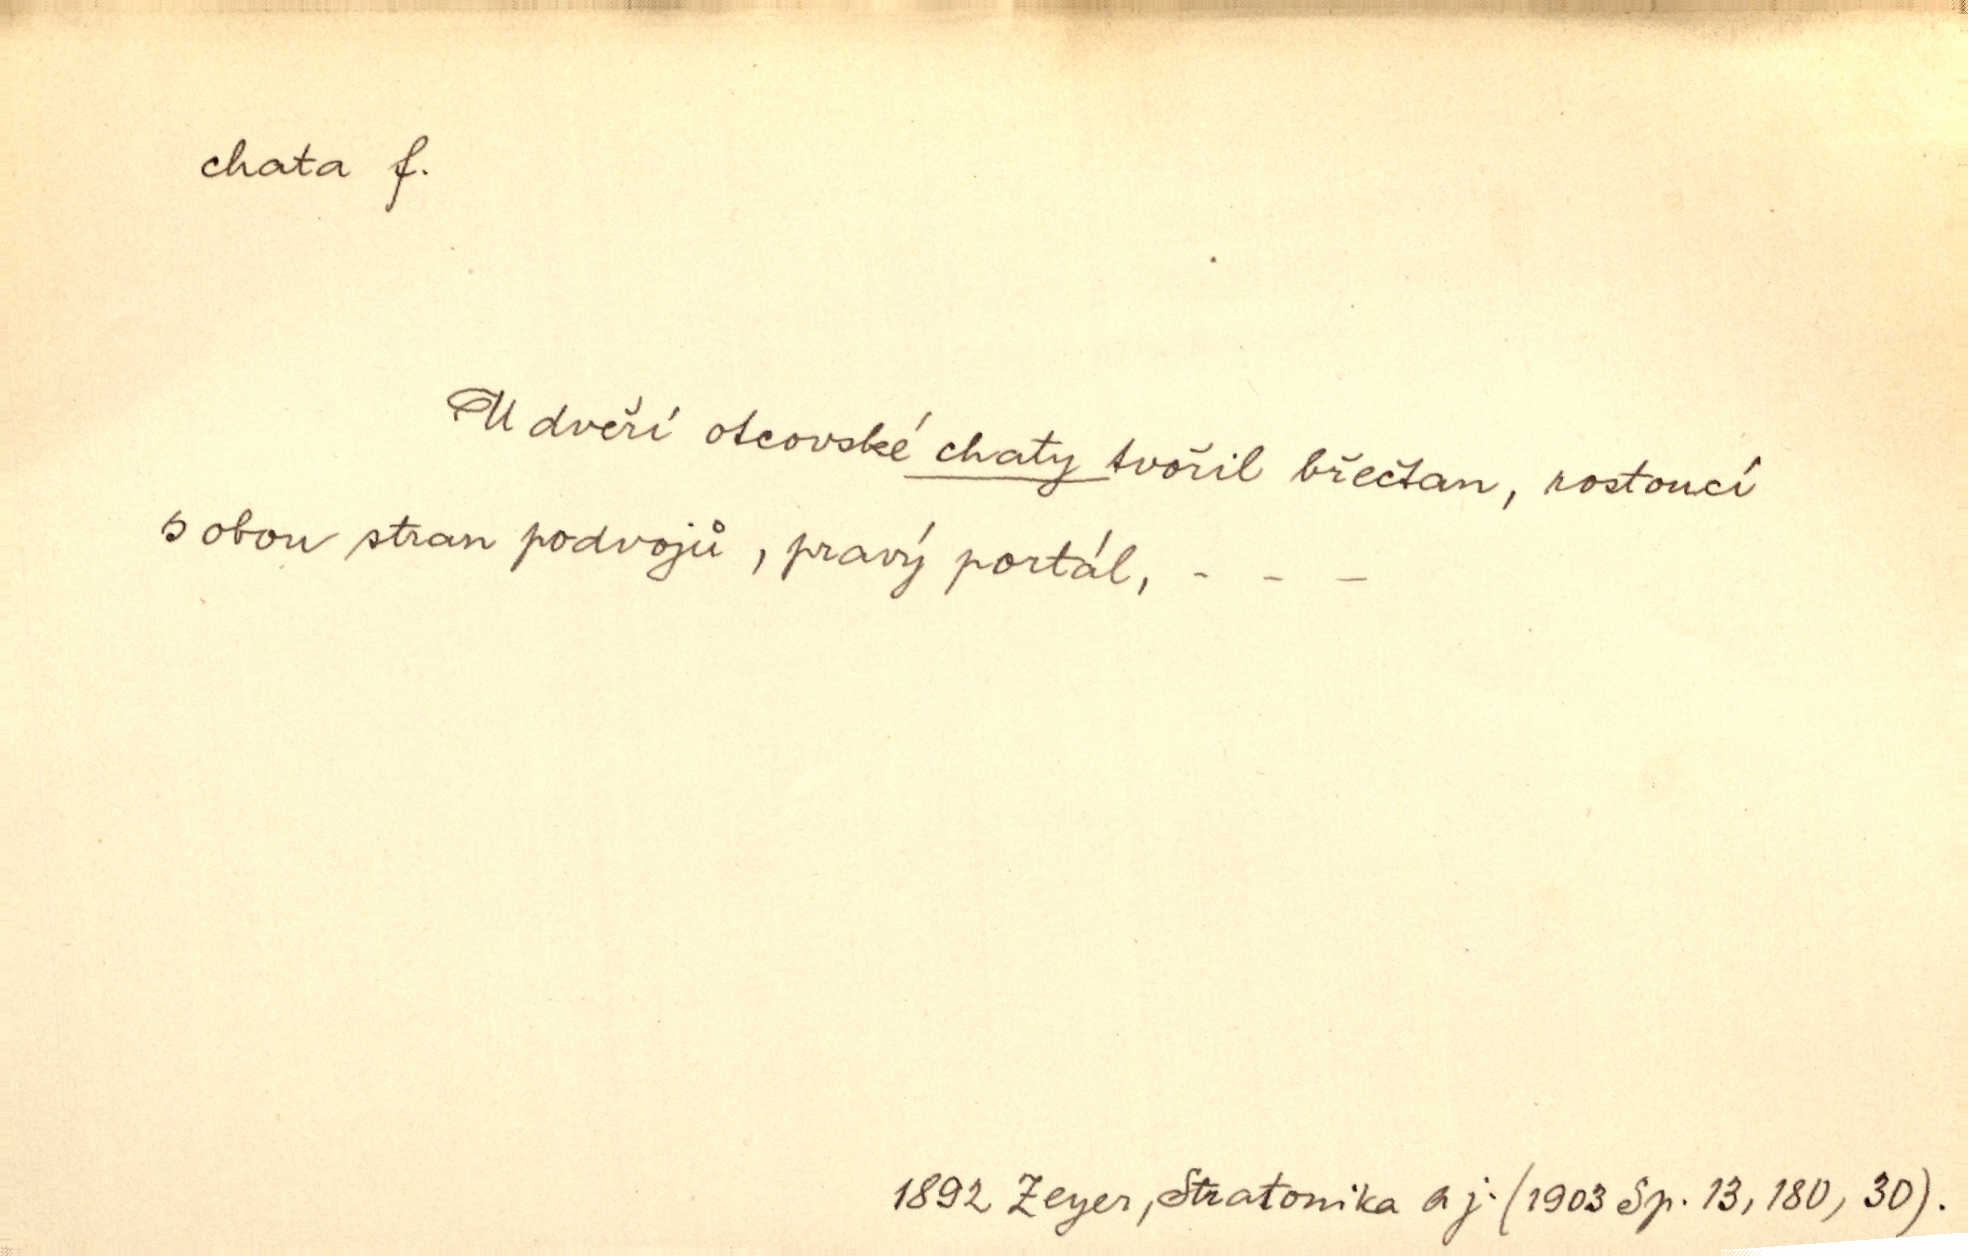 chata f.
U dveří otcovské chaty tvořil břečtan, rostoucí
s obou stran podvojů, pravý portál, - - -
1892 Zeyer, Stratonika a j. (1903 Sp. 13, 180, 30).